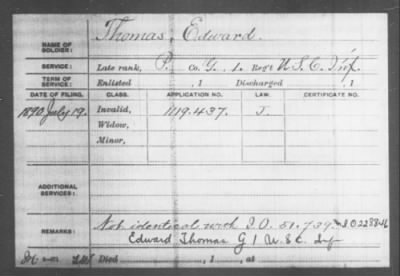 Thomas, Edward.
NAME OF SOLDIER:
SERVICE: Late rank, P. Co. G, 1. Reg't U.S.C. Inf.
TERM OF SERVICE: Enlisted , 1 Discharged , 1
DATE OF FILING. CLASS. APPLICATION NO. LAW. CERTIFICATE NO.
1890 July 19. Invalid, 1119.437. J.
Widow,
Minor,
ADDITIONAL SERVICES:
REMARKS: Not identical with I.O. 51.739
Edward Thomas G 1 U.S.C. Inf
Died , 1 , at